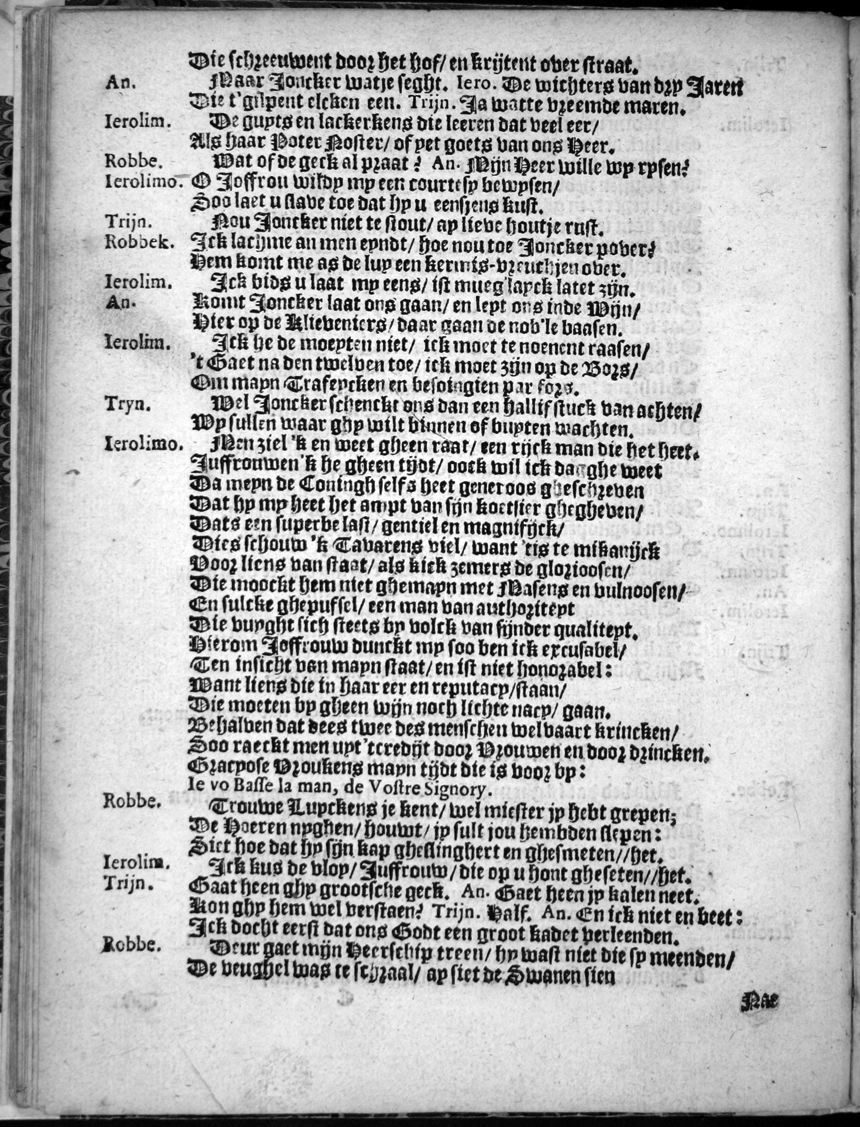 Die schreeuwent door het hof/ en krijtent over straat.
An. Maar Joncker watje seght. Iero. De wichters van dry Jaren
Die t'gilpent elcken een. Trijn. Ja watte vreemde maren.
Ierolim. De guyts en lackerkens die leeren dat veel eer/
Als haar Poter Noster/ of yet goets van ons Heer.
Robbe. Wat of de geck al praat? An. Mijn Heer wille wy rysen?
Ierolimo. O Joffrou wildy my een courtesy bewysen/
Soo laet u slave toe dat hy u eensjens kust.
Trijn. Nou Joncker niet te stout/ ay lieve houtje rust.
Robbek. Ick lachme an men eyndt/ hoe nou toe Joncker pover?
Hem komt me as de luy een kermis-vreuchjen over.
Ierolim. Ick bids u laat my eens/ ist mueg'layck latet zijn.
An. Komt Joncker laat ons gaan/ en leyt ons inde Wijn/
Hier op de Klieveniers/ daar gaan de nob'le baasen.
Ierolim. Ick he de moeyten niet/ ick moet te noenent raasen/
't Gaet na den twelven toe/ ick moet zijn op de Bors/
Om mayn Trafeycken en besoingtien par fors.
Tryn. Wel Joncker schenckt ons dan een hallif stuck van achten/
Wy sullen waar ghy wilt binnen of buyten wachten.
Ierolimo. Men ziel 'k en weet gheen raat/ een rijck man die het heet.
Juffrouwen 'k he gheen tijdt/ oock wil ick dat ghe weet
Da meyn de Coningh selfs heet generoos gheschreven
Dat hy my heet het ampt van sijn koetsier ghegheven/
Dats een superbe last/ gentiel en magnifijck/
Dies schouw 'k Tavarens viel/ want 'tis te mikanijck
Voor liens van staat/ als kick zemers de glorioosen/
Die moockt hem niet ghemayn met Masens en vulnoosen/
En sulcke ghepuffel/ een man van authoriteyt
Die vuyght sich steets by volck van fijnder qualiteyt.
Hierom Joffrouw dunckt my soo ben ick excusabel/
Ten insicht van mayn staat/ en ist niet honorabel:
Want liens die in haar eer en reputacy/staan/
Die moeten by gheen wijn noch lichte nacy/ gaan.
Behalven dat dees twee des menschen welvaart krincken/
Soo raeckt men uyt 'tcredijt door Vrouwen en door drincken.
Gracyose Vroukens mayn tijdt die is voor by:
Ie vo Basse la man, de Vostre Signory.
Robbe. Trouwe Luyckens je kent/ wel miester jy hebt grepen;
De Hoeren nyghen/ houwt/ jy sult jou hembden slepen:
Siet hoe dat hy sijn kap ghellinghert en ghesmeten//het.
Ierolim. Ick kus de vloy/ Juffrouw/ die op u hont gheseten//het.
Trijn. Gaat heen ghy grootsche geck. An. Gaet heen jy kalen neet.
Kon ghy hem wel verstaen? Trijn. Half. An. En ick niet en beet:
Ick docht eerst dat ons Godt een groot kadet verleenden.
Robbe. Deur gaet mijn Heerschip treen/ hy wast niet die sy meenden/
De veughel was te schraal/ ay siet de Swanen sien
Nae